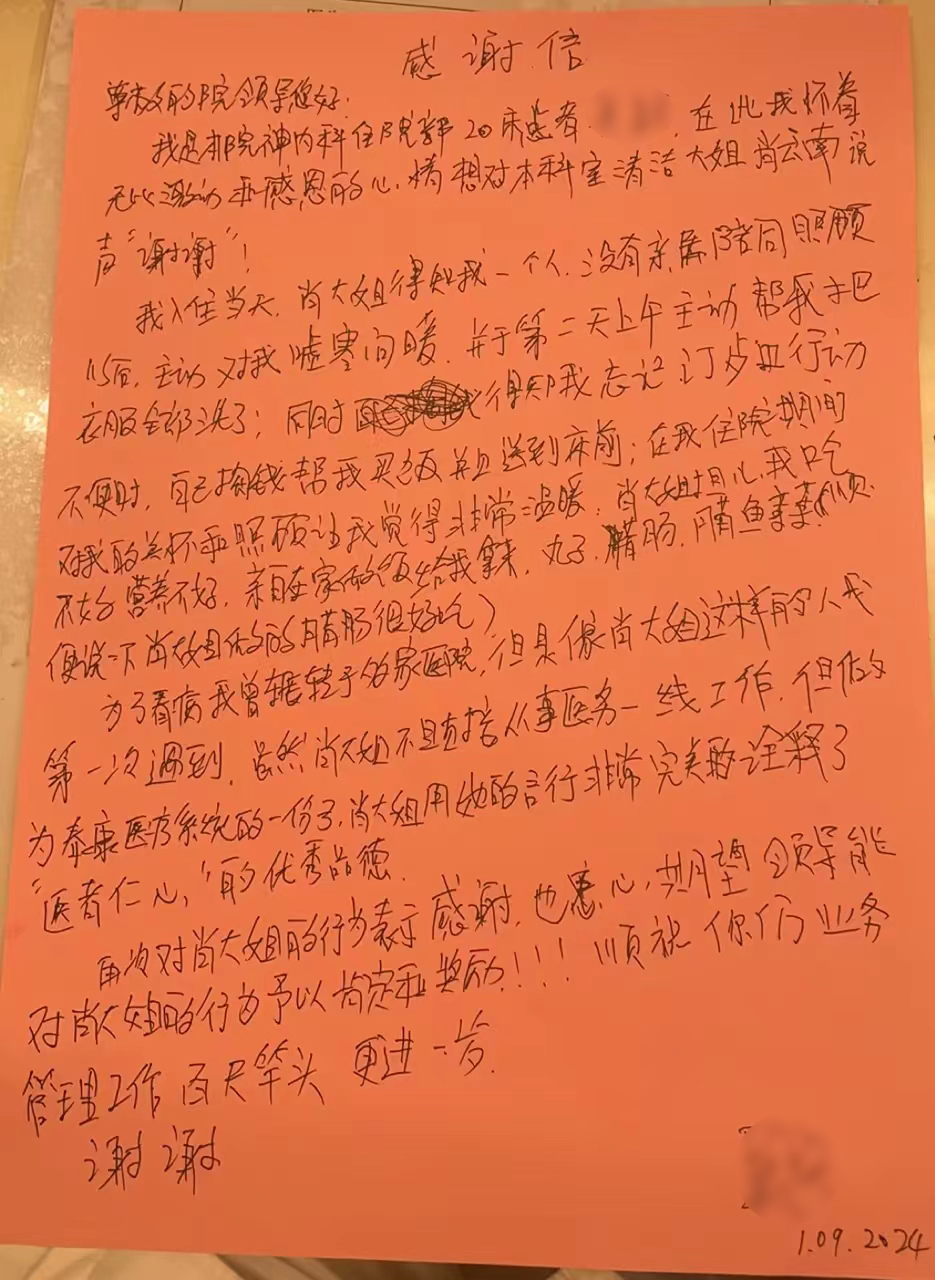 感谢信
尊敬的院领导您好：
我是那院神内科住院部20床患者 ，在此我怀着
无比激动和感恩的心情想对本科室清洁大姐肖云南说
声“谢谢”！
我入住当天，肖大姐得知我一个人，没有亲属陪同照顾
以后，主动对我嘘寒问暖，并于第二天上午主动帮我把
衣服全部洗了；同时 得知我忘记订 行动
不便时，自己掏钱帮我买饭并且送到床前；在我住院期间
对我的关怀和照顾让我觉得非常温暖，肖大姐担心我吃
不好营养不好，亲自在家做饭给我拿来，丸子，腊肠，腊鱼 （顺
便说一下肖大姐做的腊肠很好吃）
为了看病我曾辗转于多家医院，但是像肖大姐这样的人我
第一次遇到，虽然肖大姐不直接从事医务一线工作，但做为
为泰康医疗系统的一份子，肖大姐用她的言行非常完美的诠释了
“医者仁心”的优秀品德。
再次对肖大姐的行为表示感谢，也 心期望领导能
对肖大姐的行为予以肯定和奖励！！！顺祝你们业务
管理工作百尺竿头 更进一步。
谢谢
1.09.2024